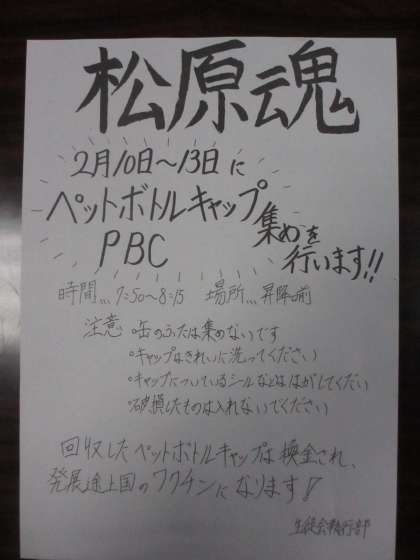 松原魂
2月10日~13日に
ペットボトルキャップ
PBC
集めを
行います!!
時間… 7:50~8:15 場所… 昇降口前
注意 ・缶のふたは集めないです
・キャップはきれいに洗ってください
・キャップについているシールなどははがしてください
・破損したものは入れないでください
回収したペットボトルキャップは換金され、
発展途上国のワクチンになります!
生徒会執行部